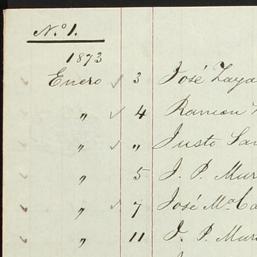 No. 1.
1873
Enero 3 José Zaya
" 4 Ramon
" " Justo San
" 5 J. P. Mur
" 7 José Ma. Ca
" 11 J. P. Mur